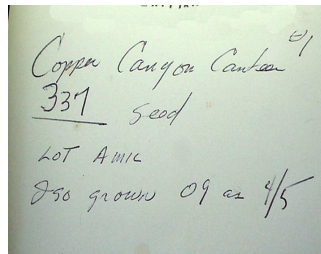 #1
Copper Canyon Canteen
337 seed
LOT AMIL
Iso grown 09 as 4/5